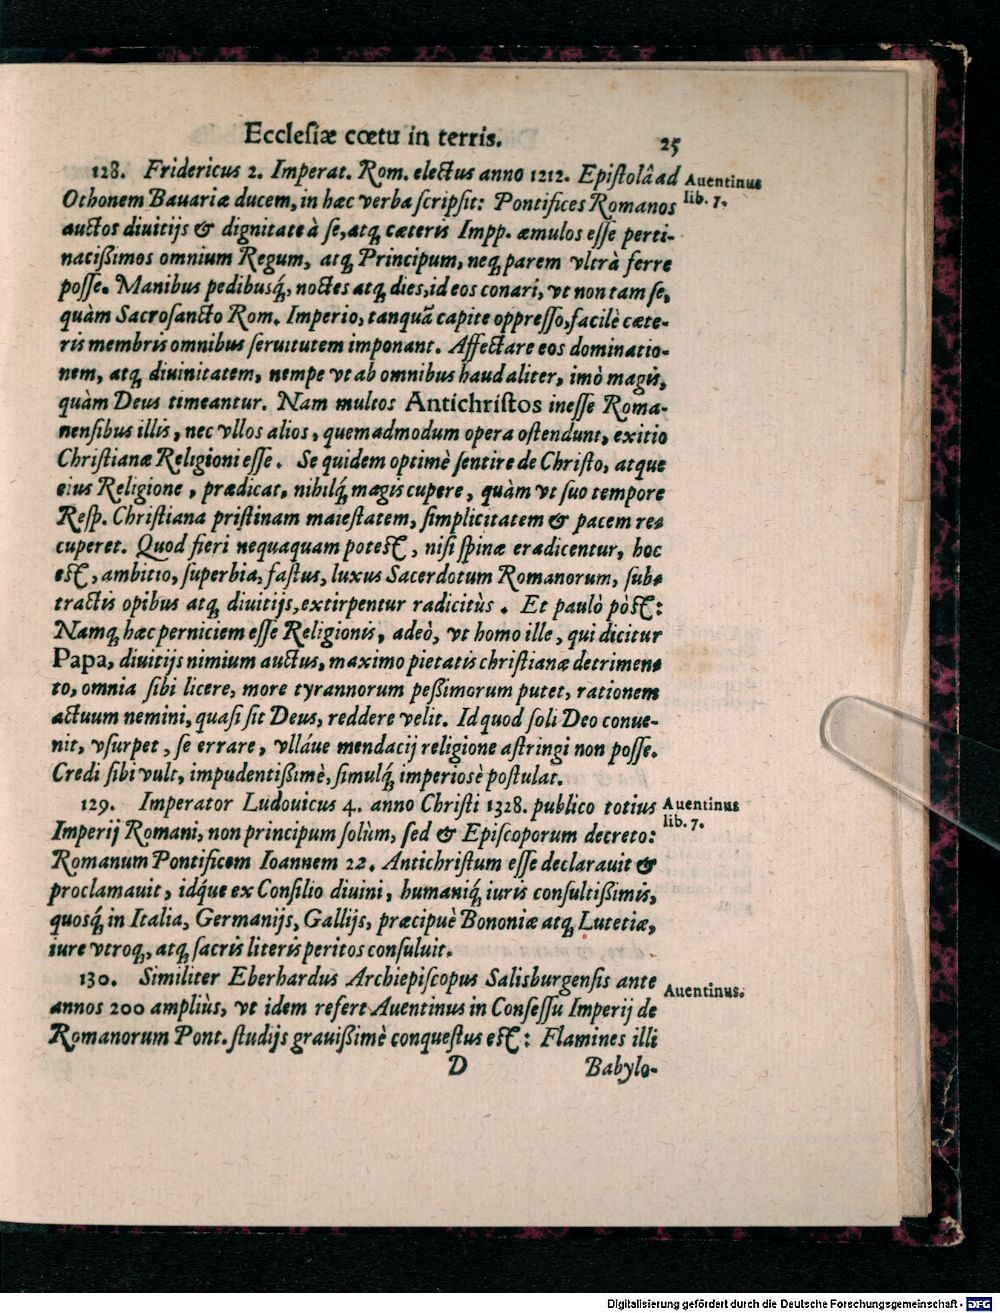 Ecclesiæ cœtu in terris. 25
128. Fridericus 2. Imperat. Rom. electus anno 1212. Epistolâ ad
Othonem Bauariæ ducem, in hæc verba scripsit: Pontifices Romanos
auctos diuitijs & dignitate à se, atq; cæteris Impp. æmulos esse perti-
nacißimos omnium Regum, atq; Principum, neq; parem vltrà ferre
posse. Manibus pedibusq́;, noctes atq; dies, id eos conari, vt non tam se,
quàm Sacrosancto Rom. Imperio, tanquã capite oppresso, facilè cæte-
ris membris omnibus seruitutem imponant. Affectare eos dominatio-
nem, atq; diuinitatem, nempe vt ab omnibus haud aliter, imò magis,
quàm Deus timeantur. Nam multos Antichristos inesse Roma-
nensibus illis, nec vllos alios, quemadmodum opera ostendunt, exitio
Christianæ Religioni esse. Se quidem optimè sentire de Christo, atque
eius Religione, prædicat, nihilq́; magis cupere, quàm vt suo tempore
Resp. Christiana pristinam maiestatem, simplicitatem & pacem re-
cuperet. Quod fieri nequaquam potest, nisi spinæ eradicentur, hoc
est, ambitio, superbia, fastus, luxus Sacerdotum Romanorum, sub-
tractis opibus atq; diuitijs, extirpentur radicitùs. Et paulò pòst:
Namq; hæc perniciem esse Religionis, adeò, vt homo ille, qui dicitur
Papa, diuitijs nimium auctus, maximo pietatis christianæ detrimen-
to, omnia sibi licere, more tyrannorum peßimorum putet, rationem
actuum nemini, quasi sit Deus, reddere velit. Id quod soli Deo conue-
nit, vsurpet, se errare, vlláue mendacij religione astringi non posse.
Credi sibi vult, impudentißimè, simulq́; imperiosè postulat.
129. Imperator Ludouicus 4. anno Christi 1328. publico totius
Imperij Romani, non principum solùm, sed & Episcoporum decreto:
Romanum Pontificem Ioannem 22. Antichristum esse declarauit &
proclamauit, idq́ue ex Consilio diuini, humaniq́; iuris consultißimis,
quosq́; in Italia, Germanijs, Gallijs, præcipuè Bononiæ atq; Lutetiæ,
iure vtroq;, atq; sacris literis peritos consuluit.
130. Similiter Eberhardus Archiepiscopus Salisburgensis ante
annos 200 ampliùs, vt idem refert Auentinus in Consessu Imperij de
Romanorum Pont. studijs grauißimè conquestus est: Flamines illi
D Babylo-
Auentinus
lib. 7.
Auentinus
lib. 7.
Auentinus.
Digitalisierung gefördert durch die Deutsche Forschungsgemeinschaft - DFG